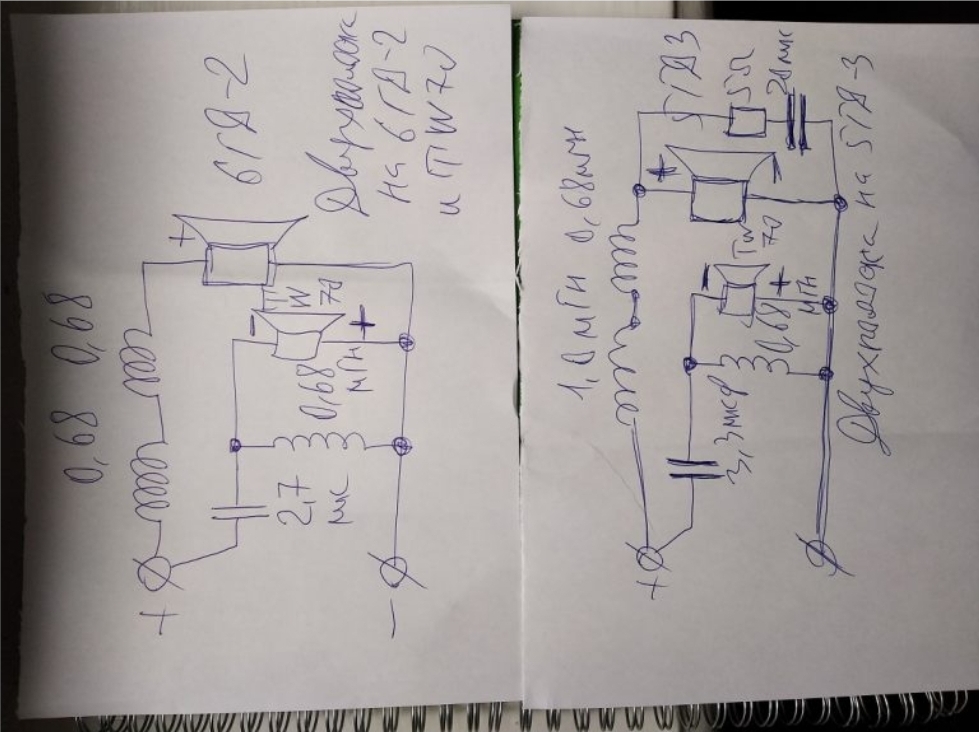 0,68 0,68
6ГД-2
Двухполоска
на 6ГД-2
и ТW70
+
-
TW
70
+
0,68
мГн
2,7
мк
+
-
1,0мГн 0,68мГн
5ГД3
5Ω
20мк
+
-
TW
70
-
+
0,68
мГн
3,3мкФ
+
Двухполоска на 5ГД-3